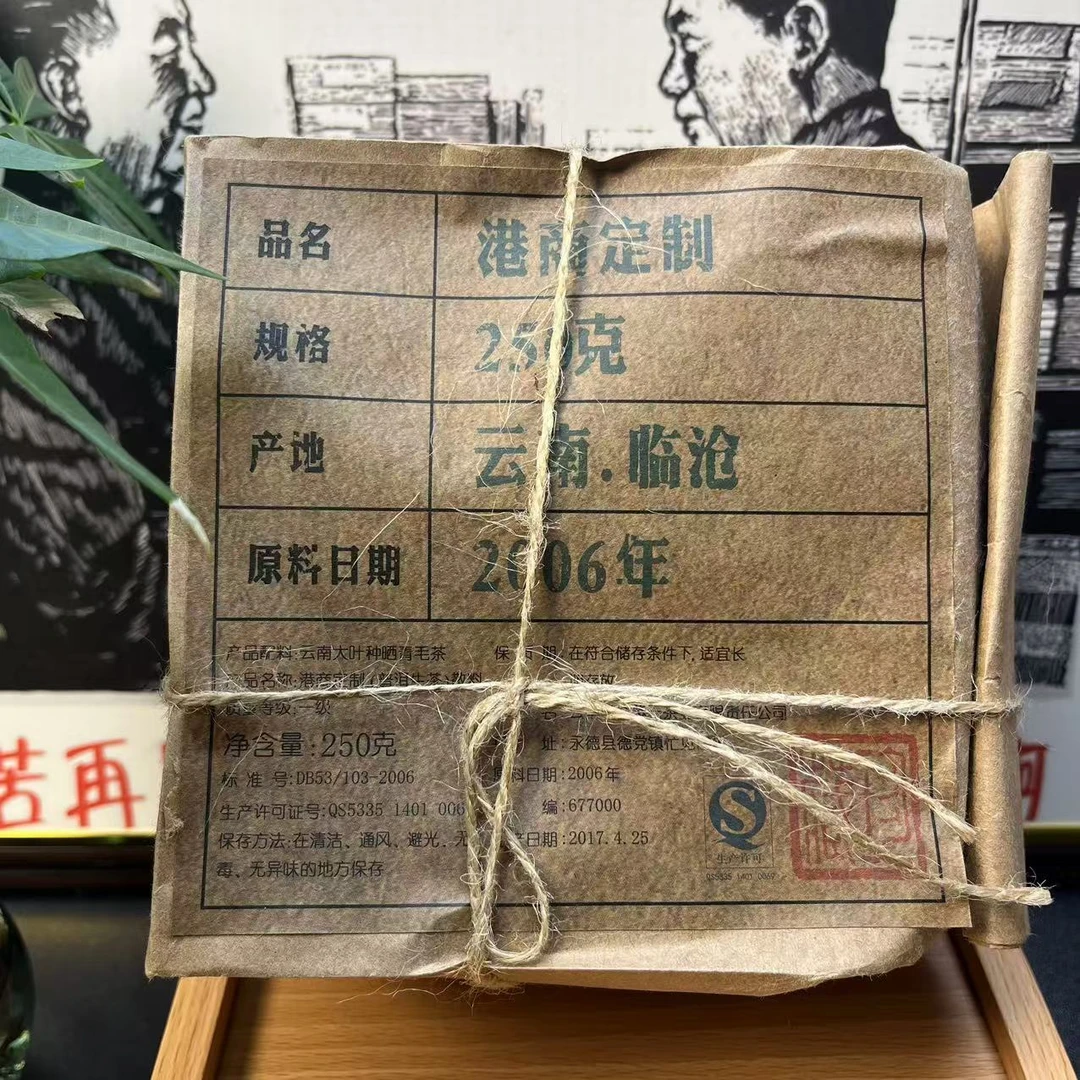 品名 港商定制
规格 250克
产地 云南.临沧
原料日期 2006年
产品配料:云南大叶种晒青毛茶
保质期:在符合储存条件下,适宜长
产品名称:港商定制(普洱生茶)散料
存放
质量等级:一级
限责任公司
净含量:250克
址:永德县德党镇忙见
标准号:DB53/103-2006
原料日期:2006年
生产许可证号:QS5335 1401 006
编:677000
保存方法:在清洁、通风、避光、无
产日期:2017.4.25
毒、无异味的地方保存
生产许可
QS5335 1401 0069
苦再